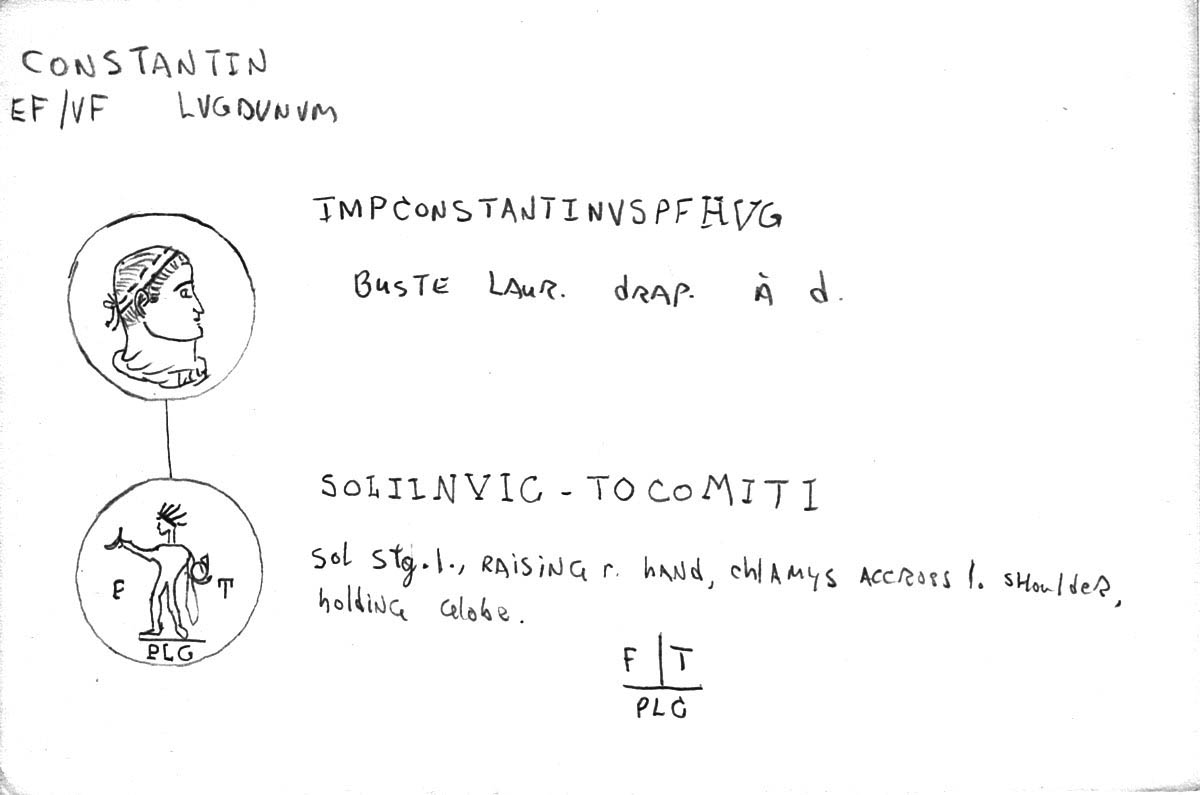 CONSTANTIN
EF/VF LVGDVNVM
IMPCONSTANTINVSPFHVG
BUSTE LAUR. dRAP. À d.
SOLIINVIC-TOCOMITI
Sol Stg. l., RAiSiNG r. hAND, chlAMYS ACCROSS l. SHoulder,
holdiNG Globe.
F T
PLG
F T
PLG